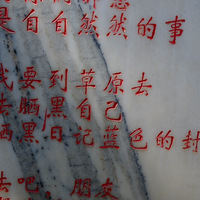 是自自然然的事
我要到草原去
去晒黑自己
去晒黑日记蓝色的封
去吧，朋友